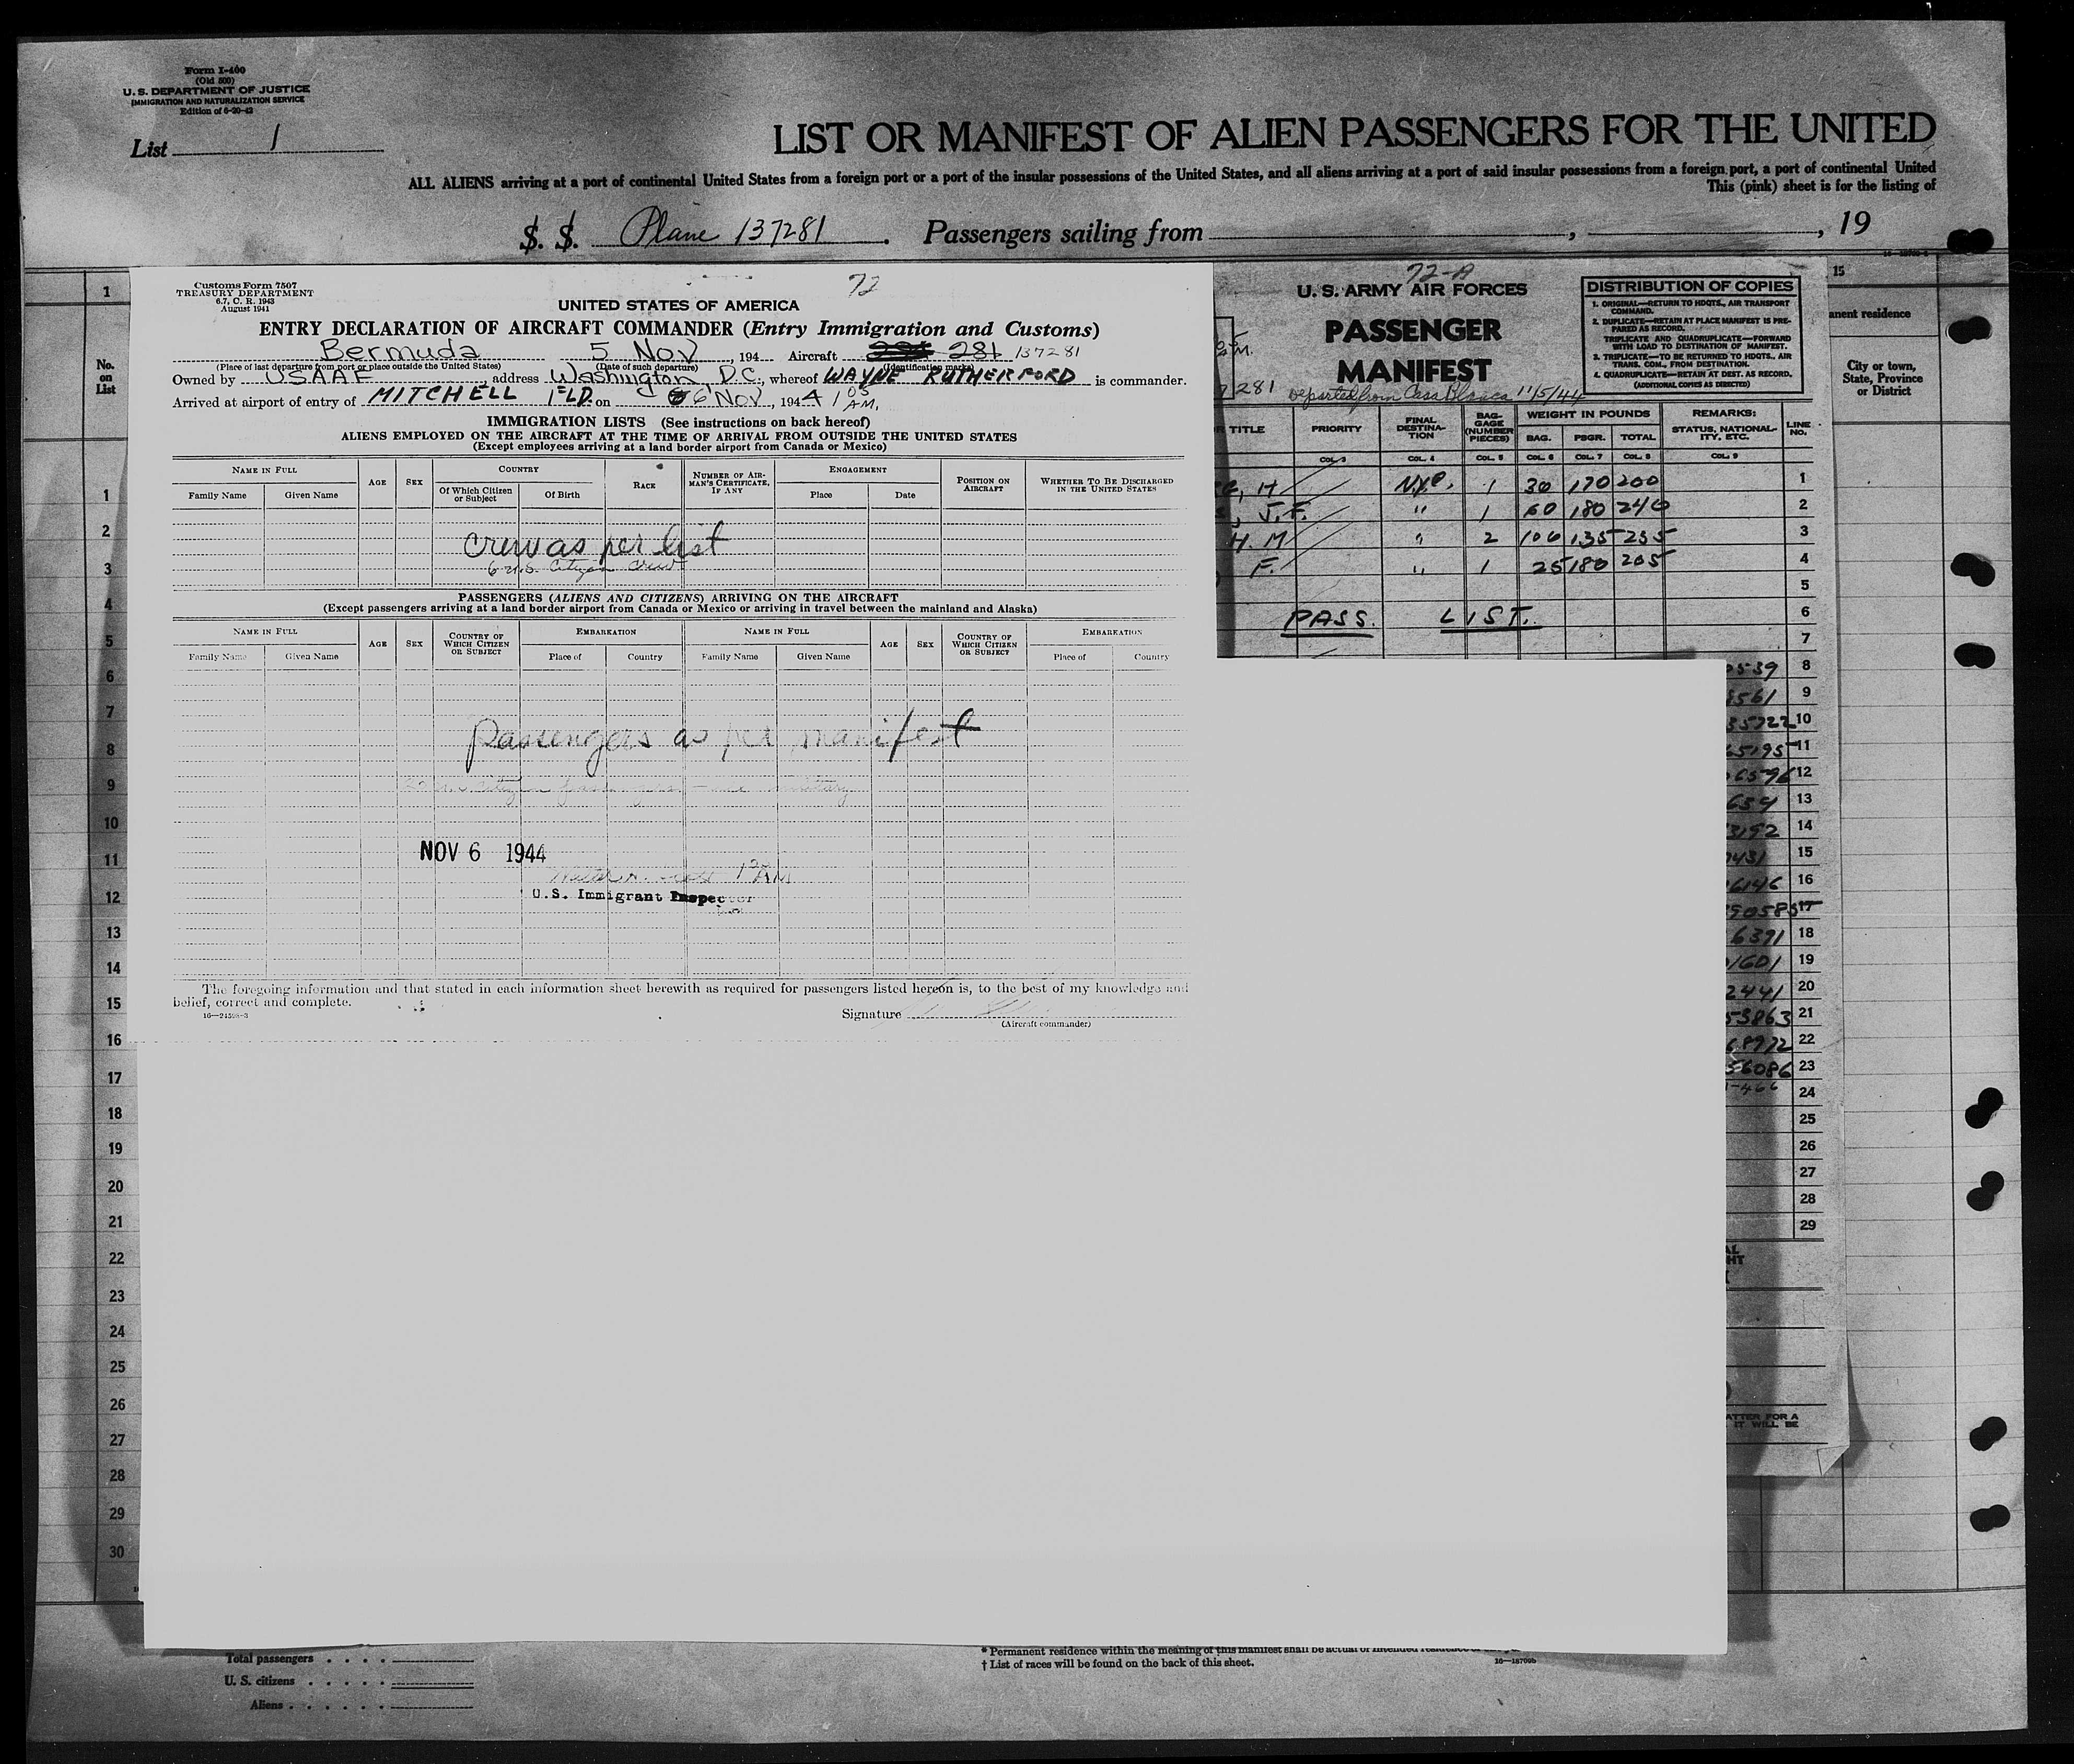 Form I-400
(Old 500)
U. S. DEPARTMENT OF JUSTICE
IMMIGRATION AND NATURALIZATION SERVICE
Edition of 6-20-42
List 1
LIST OR MANIFEST OF ALIEN PASSENGERS FOR THE UNITED
ALL ALIENS arriving at a port of continental United States from a foreign port or a port of the insular possessions of the United States, and all aliens arriving at a port of said insular possessions from a foreign port, a port of continental United
This (pink) sheet is for the listing of
S. S. Plane 137281. Passengers sailing from , , 19
Customs Form 7507
TREASURY DEPARTMENT
6.7, C. R. 1943
August 1941
72
UNITED STATES OF AMERICA
ENTRY DECLARATION OF AIRCRAFT COMMANDER (Entry Immigration and Customs)
Bermuda 5 Nov, 194 Aircraft 281 137281
(Place of last departure from port or place outside the United States) (Date of such departure) (Identification marks)
Owned by USAAF, address Washington, D.C., whereof WAYNE RUTHERFORD is commander.
Arrived at airport of entry of MITCHELL FLD. on 6 Nov, 1944 1 05 AM.
IMMIGRATION LISTS (See instructions on back hereof)
ALIENS EMPLOYED ON THE AIRCRAFT AT THE TIME OF ARRIVAL FROM OUTSIDE THE UNITED STATES
(Except employees arriving at a land border airport from Canada or Mexico)
NAME IN FULL AGE SEX COUNTRY RACE NUMBER OF AIRMAN'S CERTIFICATE, IF ANY ENGAGEMENT POSITION ON AIRCRAFT WHETHER TO BE DISCHARGED IN THE UNITED STATES
Family Name Given Name Of Which Citizen or Subject Of Birth Place Date
Crew as per list
6 U.S. Citizen Crew
PASSENGERS (ALIENS AND CITIZENS) ARRIVING ON THE AIRCRAFT
(Except passengers arriving at a land border airport from Canada or Mexico or arriving in travel between the mainland and Alaska)
NAME IN FULL AGE SEX COUNTRY OF WHICH CITIZEN OR SUBJECT EMBARKATION NAME IN FULL AGE SEX COUNTRY OF WHICH CITIZEN OR SUBJECT EMBARKATION
Family Name Given Name Place of Country Family Name Given Name Place of Country
Passengers as per manifest
NOV 6 1944
U.S. Immigrant Inspector
The foregoing information and that stated in each information sheet herewith as required for passengers listed hereon is, to the best of my knowledge and
belief, correct and complete.
16—24598-3
Signature
(Aircraft commander)
72-A
U. S. ARMY AIR FORCES
PASSENGER
MANIFEST
281 Departed from CasaBlanca 11/5/44
DISTRIBUTION OF COPIES
1. ORIGINAL—RETURN TO HDQTS., AIR TRANSPORT COMMAND.
2. DUPLICATE—RETAIN AT PLACE MANIFEST IS PREPARED AS RECORD.
TRIPLICATE AND QUADRUPLICATE—FORWARD WITH LOAD TO DESTINATION OF MANIFEST.
3. TRIPLICATE—TO BE RETURNED TO HDQTS., AIR TRANS. COM., FROM DESTINATION.
4. QUADRUPLICATE—RETAIN AT DEST. AS RECORD.
(ADDITIONAL COPIES AS DIRECTED)
TITLE PRIORITY FINAL DESTINATION BAGGAGE (NUMBER PIECES) WEIGHT IN POUNDS REMARKS: STATUS, NATIONALITY, ETC. LINE NO.
BAG. PSGR. TOTAL
COL. 3 COL. 4 COL. 5 COL. 6 COL. 7 COL. 8 COL. 9
H N.Y.C. 1 30 170 200 1
J.F. " 1 60 180 240 2
H. M " 2 100 135 235 3
F. " 1 25 180 205 4
5
PASS. LIST. 6
7
539 8
561 9
35722 10
65195 11
6596 12
654 13
3192 14
431 15
6146 16
90585 17
6391 18
1601 19
2441 20
53863 21
68972 22
56086 23
466 24
25
26
27
28
29
ATTER FOR A
IT WILL BE
15
anent residence
City or town,
State, Province
or District
No.
on
List
1
1
2
3
4
5
6
7
8
9
10
11
12
13
14
15
16
17
18
19
20
21
22
23
24
25
26
27
28
29
30
Total passengers
U. S. citizens
Aliens
* Permanent residence within the meaning of this manifest shall be actual or intended residence
† List of races will be found on the back of this sheet.
16—18709b